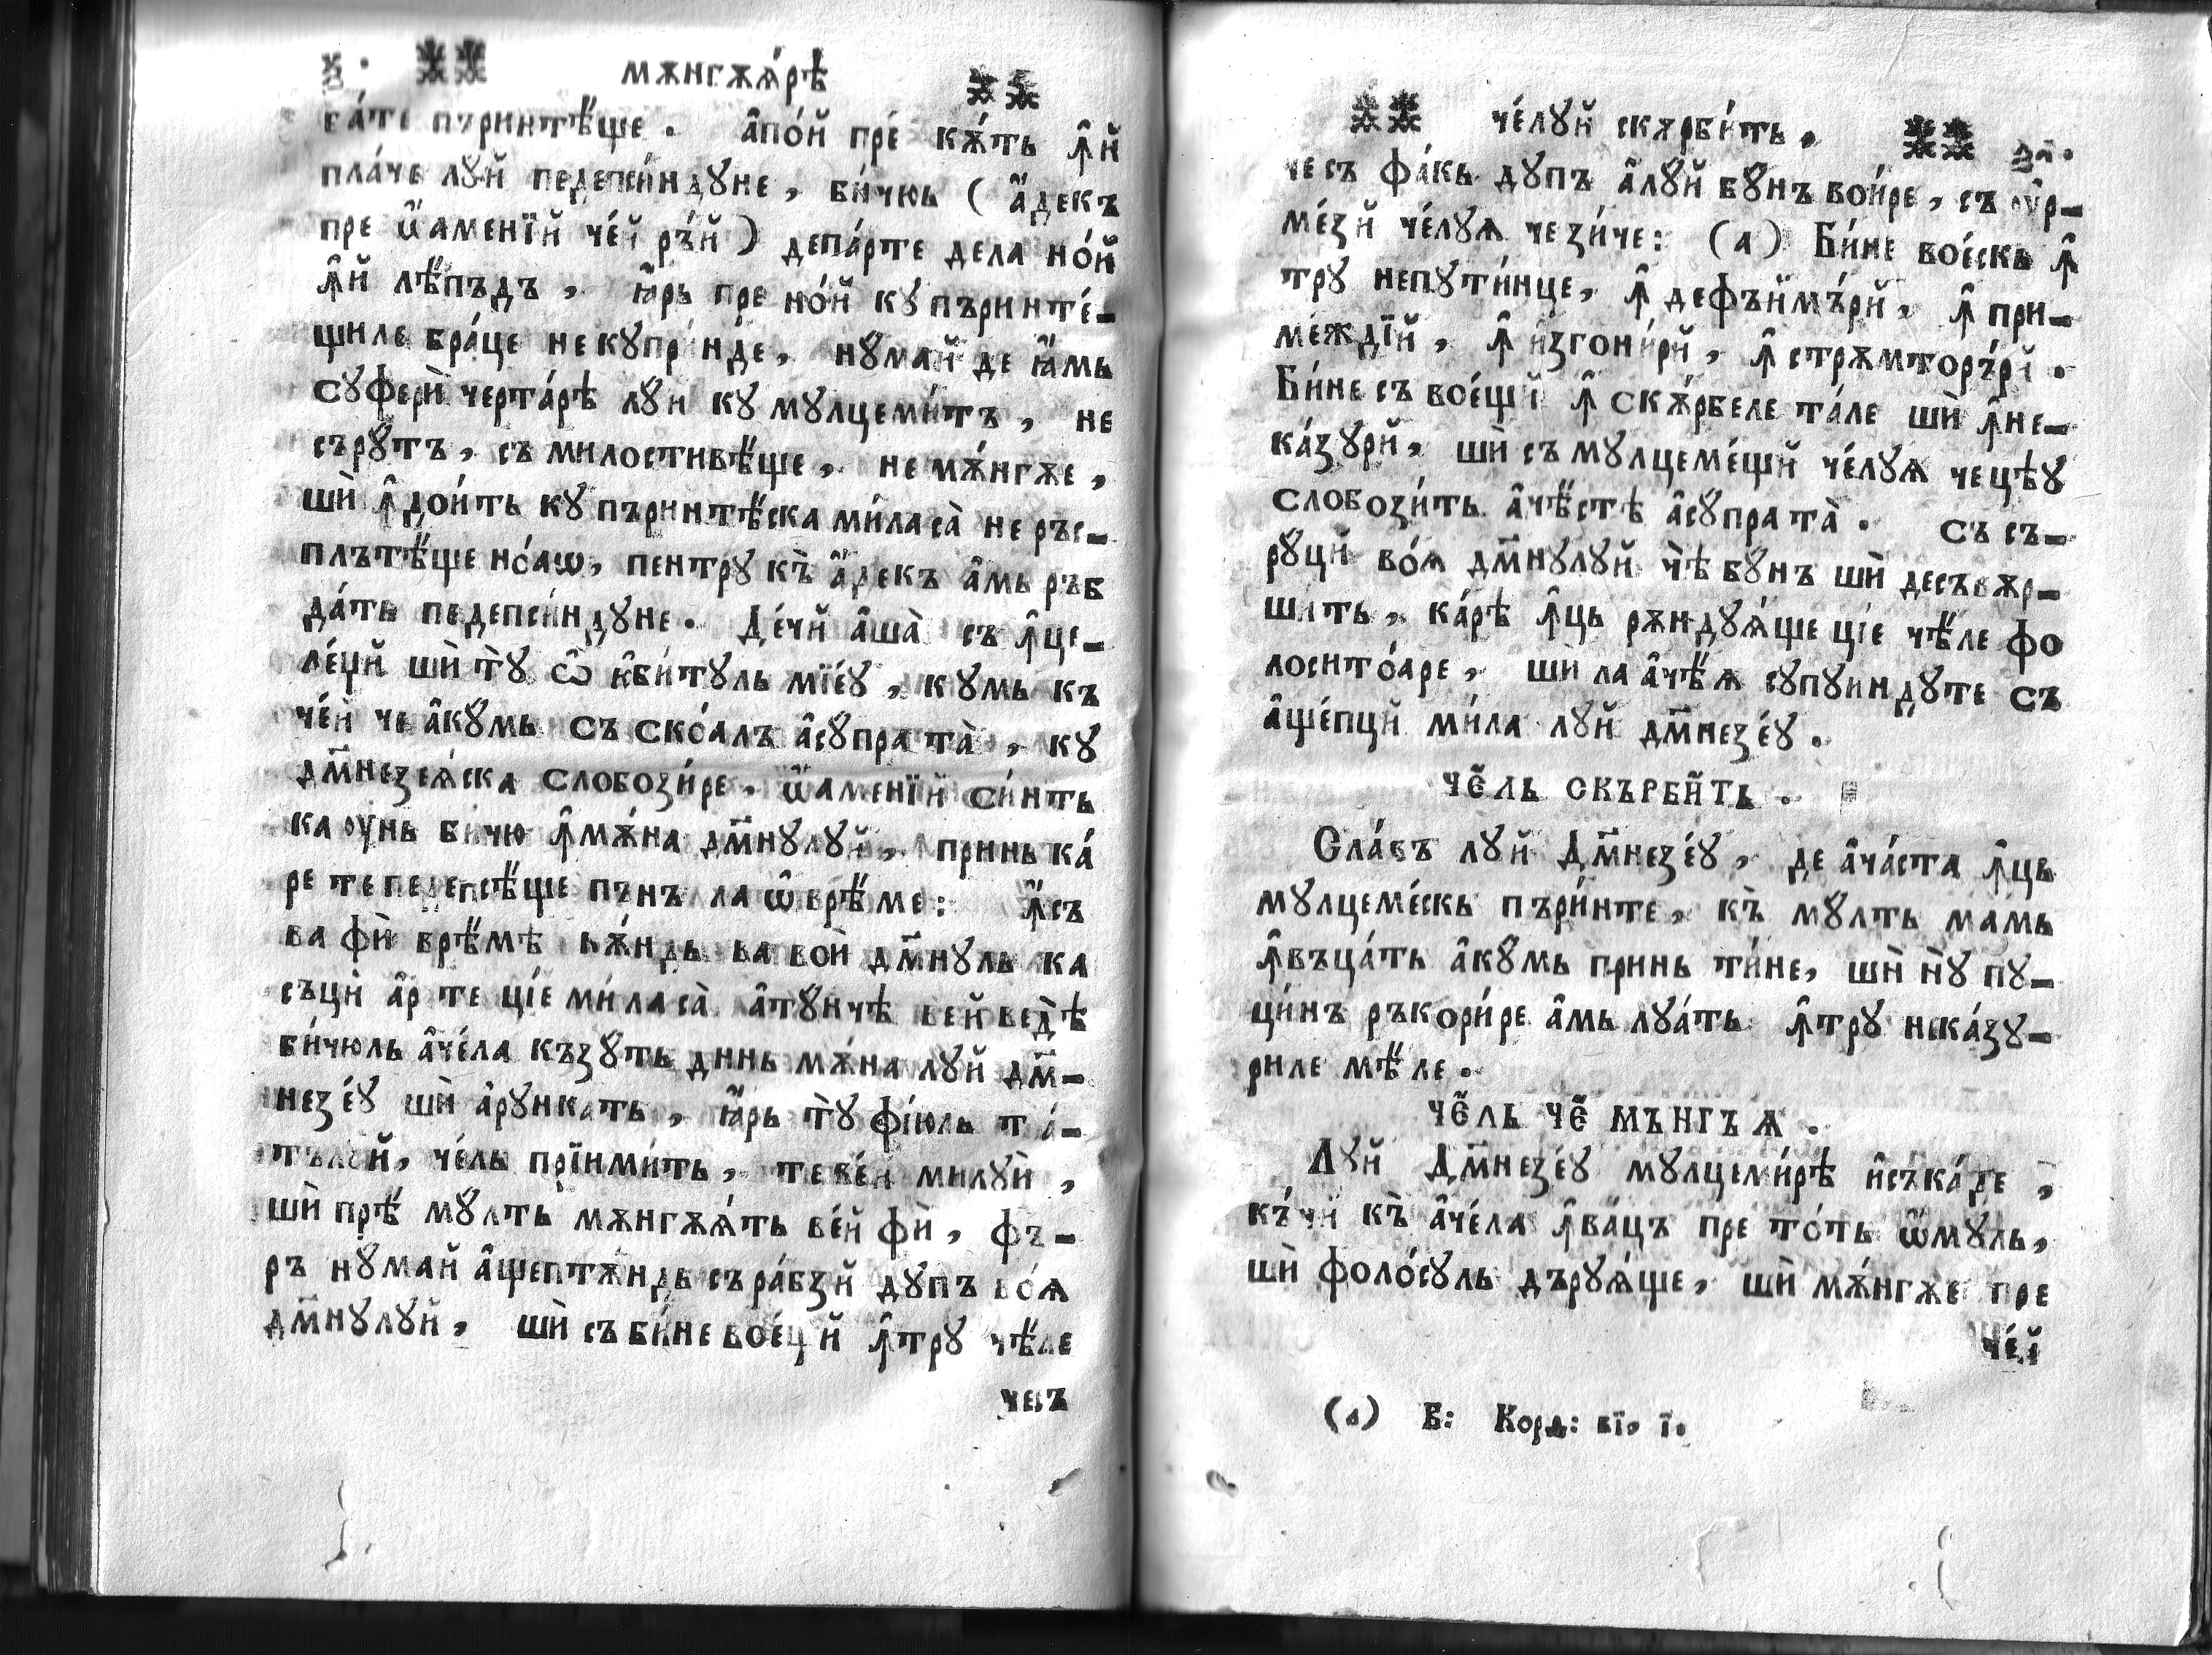 ѯ҃. мѫнгѫѧ́рѣ
ва́те пъринтѣ́ще. а҆по́й пре́ кѫ́ть ꙟ҆й
пла́че лꙋй педепси́ндꙋне, би́чюь ( а҆́декъ
пре ѡ҆́аменїй че́й ръ́й ) депа́рте дела но́й
ꙟ҆й лѣ́пъдъ, ꙗ҆́рь пре но́й кꙋ пъринте́-
щиле бра́це некꙋпри́нде, нꙋ́май де ꙗ҆́мь
сꙋфери̇̀ черта́рѣ лꙋй кꙋ мꙋлцеми́тъ, не
сърꙋ́тъ, съ милостивѣ́ще, не мѫ́нгѫе,
шѝ ꙟ҆дои́ть кꙋ пъринтѣ́ска ми́ла са̀ не ръс-
плътѣ́ще но́аѡ, пентрꙋ къ̀ а҆́декъ а҆мь ръб
да́ть педепси́ндꙋне. Де́чй а҆ша̀ съ ꙟ҆це-
ле́щй шѝ тꙋ̀ ѽ кꙋви́тꙋль мїе́ꙋ, кꙋмь къ
че́й че а҆кꙋмь съ скоалъ а҆сꙋ́пра та̀, кꙋ
дм҃незеѧ́ска слобози́ре, ѡ҆́аменїй си́нть
ка оу҆нь би́чю ꙟ҆мѫ́на дм҃нꙋлꙋй, принь ка́
ре те педепсѣ́ще пънъ ла ѡ҆ врѣ́ме: ꙟ҆съ
ва фѝ врѣ́мѣ кѫ́ндь ва вои̇̀ дм҃нꙋль ка
съцй а҆рте цїе ми́ла са̀ а҆тꙋ́нчѣ вей ведѣ̀
би́чюль а҆че́ла къзꙋ́ть динь мѫ́на лꙋй дм҃-
незе́ꙋ шѝ а҆рꙋнкать, ꙗ҆́рь тꙋ̀ фі́юль та́-
тълꙋй, че́ль прїими́ть, те ве́й милꙋѝ,
шѝ прѣ́ мꙋ́лть мѫнгѫѧ́ть ве́й фѝ, фъ-
ръ нꙋ́май а҆щептѫ́ндь съ ра́бзй дꙋпъ во́ѧ
дм҃нꙋлꙋй, шѝ съ би́не вое́щй ꙟ҆трꙋ чѣ́ле
чевъ
че́лꙋй скѫрби́ть, ѯ҃а.
че съ фа́кь дꙋпъ а҆лꙋй бꙋ́нъ вои́ре, съ оу҆р-
ме́зй че́лꙋѧ че зи́че: (а) Би́не вое́скь ꙟ҆
трꙋ непꙋти́нце, ꙟ҆ дефъймъ́рй, ꙟ҆ при-
ме́ждїй, ꙟ҆ изгони́рй, ꙟ҆ стрѫмторъ́рй.
Би́не съ вое́щй ꙟ҆ скѫ́рбеле та́ле шѝ ꙟ҆ не-
ка́зꙋрй, шѝ съ мꙋлцеме́щй че́лꙋѧ че цѣꙋ
слобози́ть а҆чѣ́стѣ а҆сꙋ́пра та̀. Съ съ-
рꙋ́цй во́ѧ дм҃нꙋлꙋй чѣ̀ бꙋ́нъ шѝ десъвѫр-
шить, ка́рѣ ꙟ҆ць рѫндꙋѧ́ще цїе чѣ́ле фо
лосито́аре, шѝ ла а҆чѣ́ѧ сꙋпꙋиндꙋте съ
а҆ще́пцй ми́ла лꙋй дм҃незе́ꙋ.
че́ль скърби́ть.
Сла́въ лꙋй Дм҃незе́ꙋ, де а҆ча́ста ꙟ҆ць
мꙋлцеме́скь пъри́нте, къ̀ мꙋ́лть мамь
ꙟ҆въца́ть а҆кꙋмь принь ти́не, шѝ нꙋ̀ пꙋ-
ци́нъ ръкори́ре а҆мь лꙋа́ть ꙟ҆трꙋ нека́зꙋ-
риле мѣ́ле.
че́ль чѐ мънгъѧ.
Лꙋй Дм҃незе́ꙋ мꙋлцеми́рѣ и҆съка́де,
къ́чй къ̀ а҆че́ла ꙟ҆ва́цъ пре то́ть ѡ҆́мꙋль,
шѝ фоло́сꙋль дърꙋѧ́ще, шѝ мѫ́нгѫе пре
че́й
(а) В: Корд: ві, і.